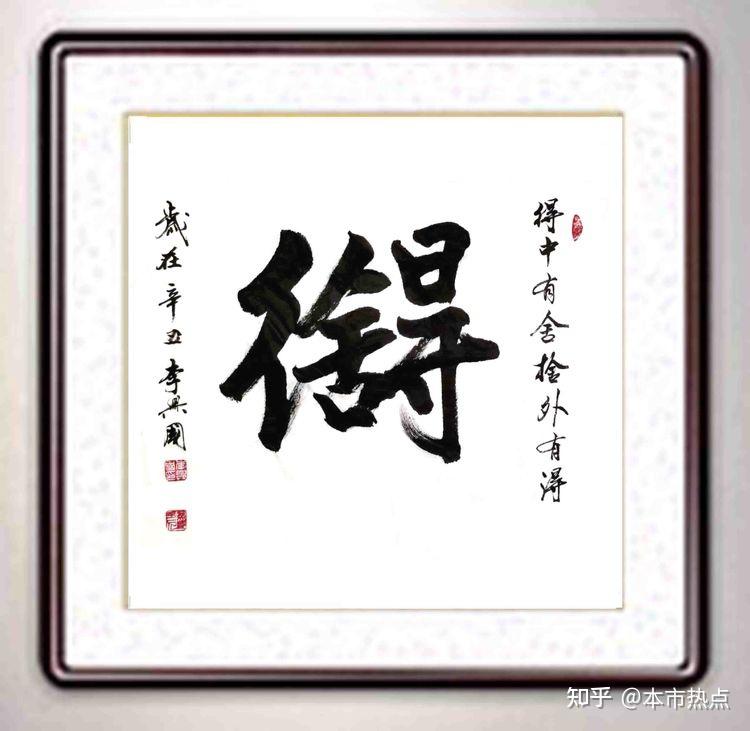 得中有舍捨外有淂
舍得
歲在辛丑李興國
知乎 @本市热点